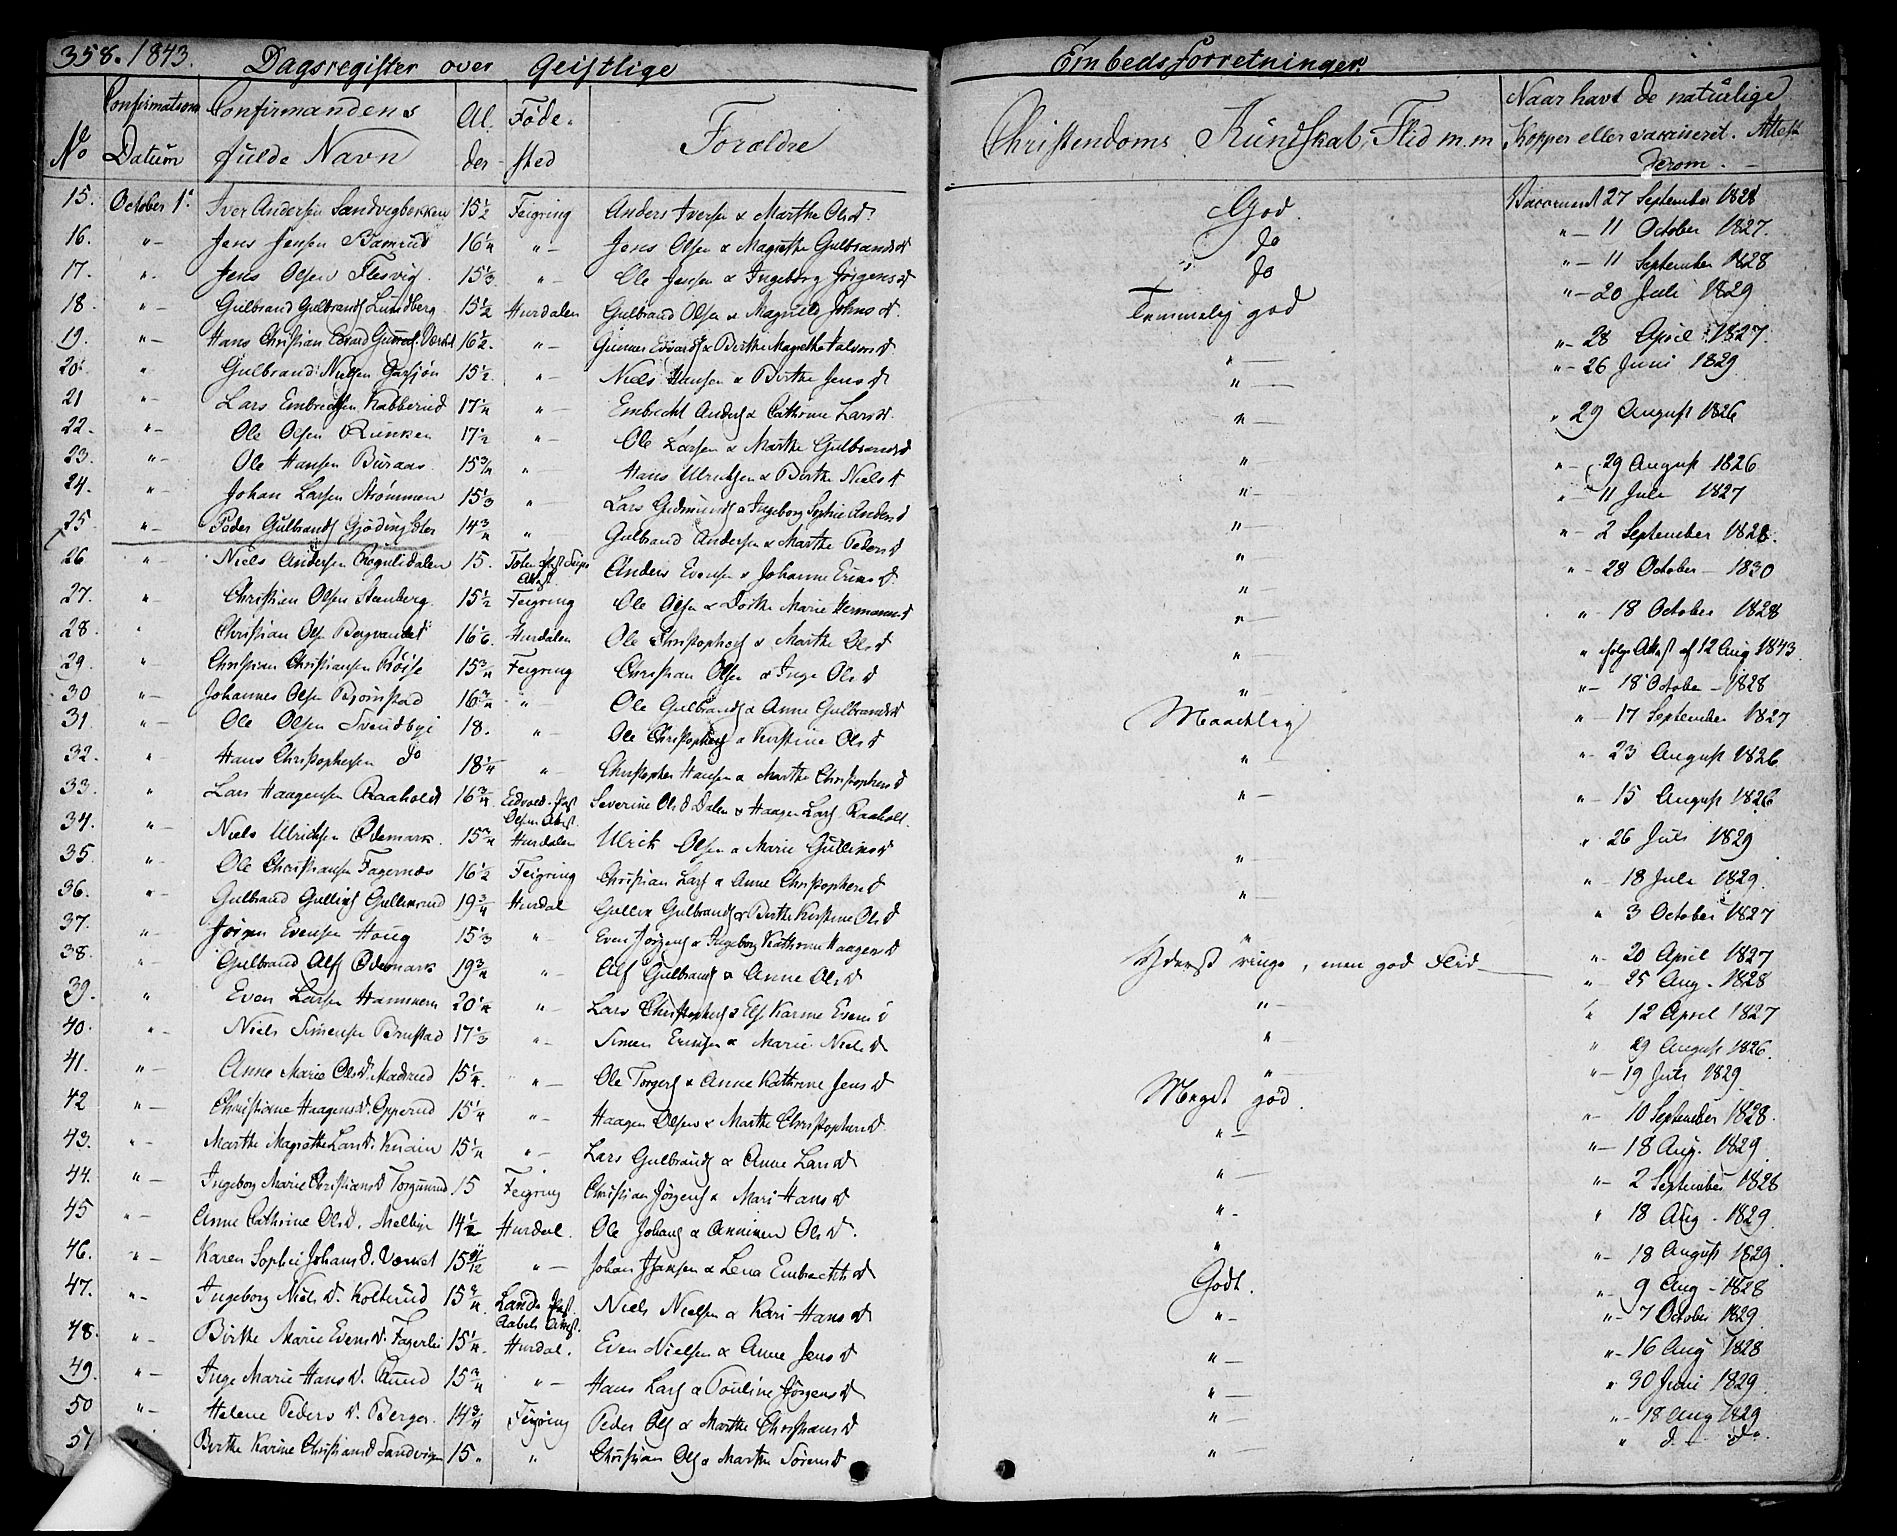 358. 1843. Dagsregister over Geistlige Embedsforretninger.
No Confirmations Datum Confirmandens fulde Navn Alder Fødested Forældre Christendoms Kundskab, Flid m.m Naar havt de natürlige Kopper eller vaccineret. Attest derom.
15. October 1. Iver Andersen Sandvigbakken 15½ Feigring Anders Iversen & Marthe Olsd. God. Vaccineret 27 September 1828
16. "— Jens Jensen 16¼ "— Jens Olsen & Magrethe Gulbrandsd do "— 11 October 1827.
17. "— Jens Olsen Flesvig. 15⅓ "— Ole Jensen & Ingeborg Jørgensd do "— 11 September 1828
18. "— Gulbrand Gulbrands Lundberg 15½ Hurdalen Gulbrand Olsen & Magnilo Johnsd. Temmelig god "— 20 Juli 1829
19. "— Hans Christian Edvard Gunners. Værket 16½. "— Gunner Edvards & Birthe Magrethe Halvorsd. "— "— 28 April 1827.
20. " Gulbrand Nielsen Garsjøn 15½. "— Niels Hansen & Birthe Jensd "— "— 26 Juni 1829
21 "— Lars Embrechtsen Kabberud 17¼ "— Embrecht Anders & Cathrine Larsd. "— " 29 August 1826
22. "— Ole Olsen Runken 17½ "— Ole Larsen & Marthe Gulbrandsd " "— 29 August 1826
23. "— Ole Hansen Buraas. 15¾ "— Hans Ulrichsen & Birthe Nielsd "— "— 11 Juli 1827
24. "— Johan Larsen Strømmen 15⅓ " Lars Gudmunds & Ingeborg Sophie Andersd "— "— 2 September 1828.
25 "— Peder Gulbrands Gjødingseler 14¾ " Gulbrand Andersen & Marthe Pedersd " "— 28 October — 1830
26 " Niels Andersen Rognlidalen 15. Toten Attest Anders Evensen & Johanne Ericsd. "— " 18 October 1828
27. " Christian Olsen Steenberg. 15½ Feigring Ole Olsen & Dorthe Marie Hermannsd "— " følge Attest af 12 Aug 1843
28. " Christian Ols Bergvandet 16⅙. Hurdalen Ole Christophers & Marthe Olsd "— "— 18 October — 1828
29. " Christian Christiansen Røise 15¾ Feigring Christian Olsen & Inge Olsd "— "— 17 September 1827
30 "— Johannes Olsen Bjørnstad 16¾ "— Ole Gulbrands & Anne Gulbrandsd Maadelig "— 23 August 1826
31 "— Ole Olsen Svendbye 18. "— Ole Christophers & Kirstine Olsd " "— 15 August 1826
32. " Hans Christophersen do 18¼ " Christopher Hansen & Marthe Christophersd "— " 26 Juli 1829
33. " Lars Haagensen Raaholdt 16¾ Eidvold. Præst Olsens Attest. Severine Olsd Dalen & Haagen Lars Raaholt. "— 18 Juli 1829.
34. "— Niels Ulrichsen Ødemark. 15¾ Hurdalen Ulrich Olsen & Marie Gullinsd "— " 3 October 1827
35 " Ole Christiansen Fagernæs 16½ Feigring Christian Lars & Anne Christophersd "— "— 20 April 1827
36. "— Gulbrand Gullins Gullinsrud 19¾ Hurdal Gullin Gulbrands & Birthe Kirstine Olsd " "— 25 Aug. 1828
37. "— Jørgen Evensen Houg 15⅓ "— Even Jørgens & Ingeborg Kathrine Haagensd Yderst ringe, men god Flid " 12 April 1827
38. "— Gulbrand Alfs Ødemark 19¾ " Alf Gulbrands & Anne Olsd "— " 29 August 1826.
39. " Even Larsen Hammern 20¼ "— Lars Christophers & Else Karine Evensd " "— 19 Juli 1829
40. "— Niels Simensen Brustad 17⅓ "— Simen Ericksen & Marie Nielsd "— "— 10 September 1828.
41. "— Anne Marie Olsd. Madsrud 15¼. "— Ole Torgers & Anne Kathrine Jensd Meget god. "— 18 Aug. 1829.
42 "— Christiane Haagensd. Opperud 15¼ "— Haagen Olsen & Marthe Christophersd. "— "— 2 September 1828
43. "— Marthe Magrethe Larsd. Knain 15¼ "— Lars Gulbrands & Anne Larsd "— " 18 Aug. 1829.
44. "— Ingeborg Marie Christiansd Torgunrud 15 Feigring Christian Jørgens & Mari Hansd "— "— 18 August 1829.
45 "— Anne Cathrine Olsd. Melbye 14½ Hurdal. Ole Johans & Annimen Olsd. " "— 9 Aug — 1828
46. "— Karen Sophie Johansd. Værket 15 11/12 "— Johan Jansen & Lena Embrechtsd Godt. "— 7 October 1829.
47. "— Ingeborg Nielsd. Kolterud 15¾. Lande Præst Aabels Attest. Niels Nielsen & Kari Hansd "— "— 16 Aug 1828
48. "— Birthe Marie Evensd. Fagerlie 15¼. Hurdal. Even Nielsen & Anne Jensd "— " 30 Juni 1829.
49. "— Inge Marie Hansd. Ruud 15¾ "— Hans Lars & Pouline Jørgensd "— "— 18 Aug 1829
50 "— Helene Pedersd. Berger. 14¾ Feigring Peder Ols & Marthe Christiansd "— " d. — do.
51 Birthe Karine Christiansd Sandvigen 15. " Christian Ols & Marthe Sørensd "—